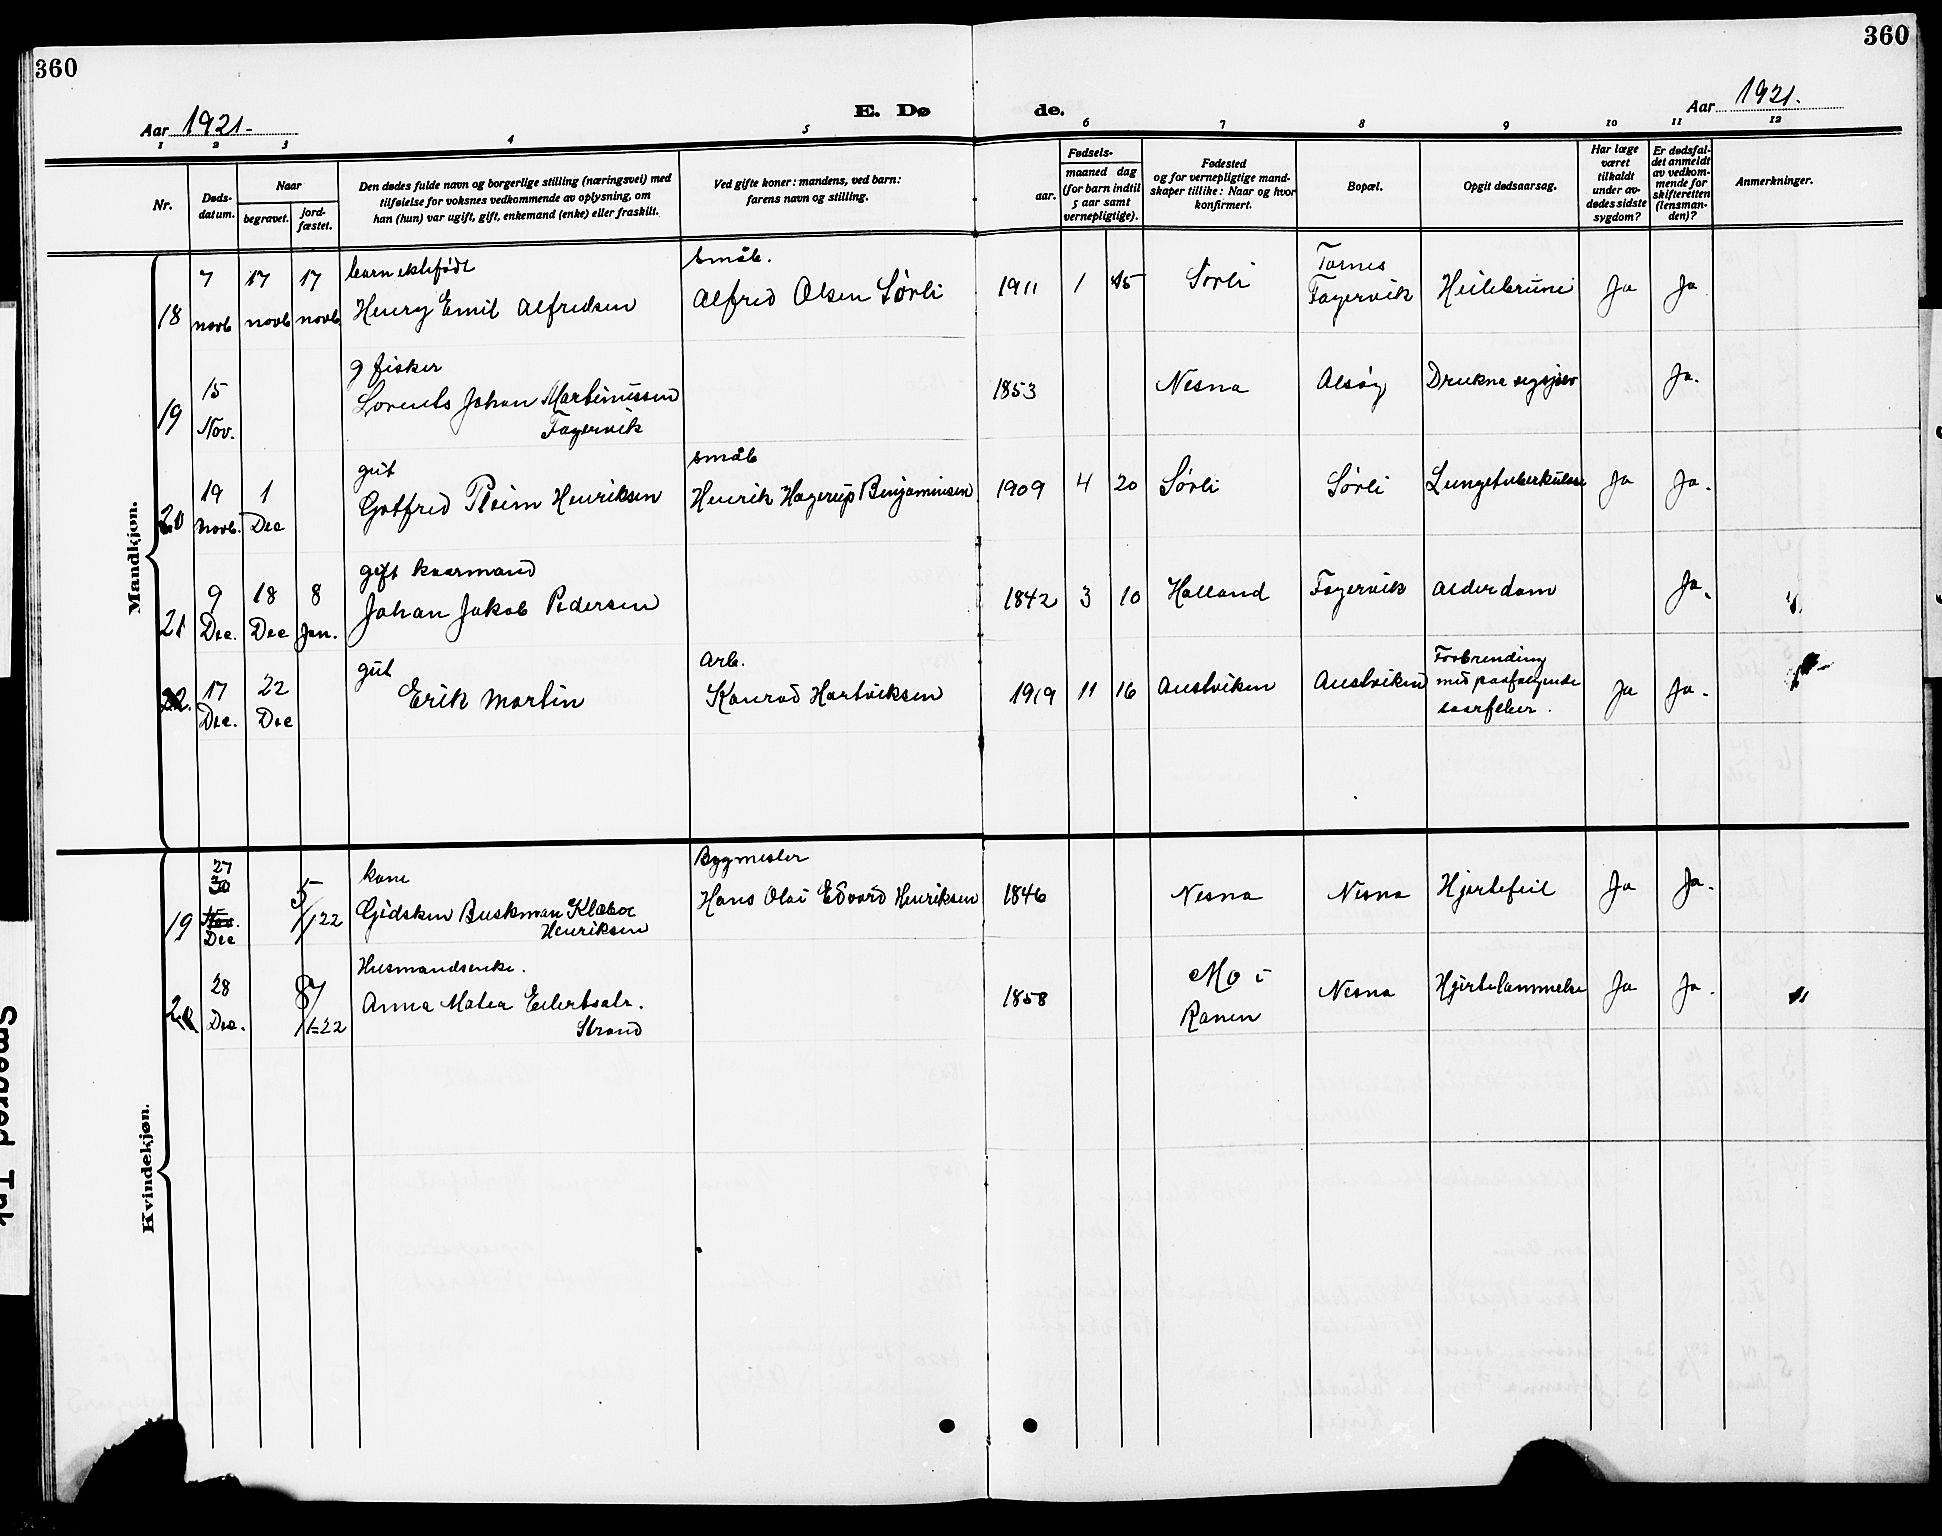 360
360
Aar 1921.
E. Dø de.
Aar 1921.
1 2 3 4 5 6 7 8 9 10 11 12
Nr.
Døds-
datum.
Naar
begravet.
jord-
fæstet.
Den dødes fulde navn og borgerlige stilling (næringsvei) med
tilføielse for voksnes vedkommende av oplysning, om
han (hun) var ugift, gift, enkemand (enke) eller fraskilt.
Ved gifte koner: mandens, ved barn:
farens navn og stilling.
Fødsels-
aar.
maaned dag
(for barn indtil
5 aar samt
vernepligtige).
Fødested
og for vernepligtige mand-
skaper tillike: Naar og hvor
konfirmert.
Bopæl.
Opgit dødsaarsag.
Har læge
været
tilkaldt
under av-
dødes sidste
sygdom?
Er dødsfal-
det anmeldt
av vedkom-
mende for
skifteretten
(lensman-
den)?
Anmerkninger.
Mandkjøn.
18 7 novb 17 novb 17 novb
barn ektefødt
Henry Emil Alfredsen
småb.
Alfred Olsen Sørli
1911 1 15 Sørli
Tornes
Fagervik
Ja Ja
19 15 Nov.
g fisker
Lorents Johan Martinussen
Fagervik
1853 Nesna Alsøy Ja.
20 19 novb. 1 Dec
gut
Gotfred Pleim Henriksen
småb
Henrik Hagerup Benjaminsen
1909 4 20 Sørli Sørli Lungetuberkulose Ja Ja.
21 9 Dec. 18 Dec 8 Jan.
gift kaarmand
Johan Jakob Pedersen
1842 3 10 Holland Fagervik Alderdom Ja.
22. 17 Dec. 22 Dec
gut
Erik Martin
Arb.
Konrad Hartviksen
1919 11 16 Austviken Austviken
Forbrending
med paafølgende
saarfeber.
Ja Ja.
Kvindekjøn.
19 27 30 Nov. Dec 5/1 22
kone
Gidsken Buskman Klæboe
Henriksen
Bygmester
Hans Olai Edvard Henriksen
1846 Nesna Nesna Hjertefeil Ja Ja.
20 28 Dec. 8/1-22
Husmandsenke.
Anna Matea Eilertsdtr.
Strand
1858
Mo i
Ranen
Nesna Hjertelammelse Ja Ja.